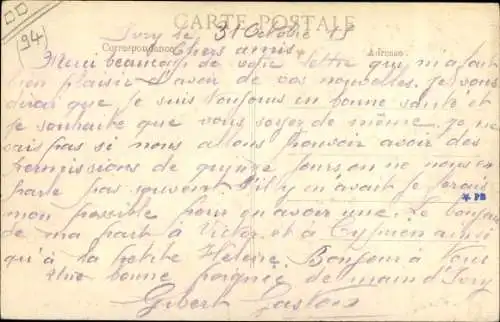 94
CARTE POSTALE
Ivry le 31 Octobre 18
Correspondance Adresse
Chers amis
Merci beaucoup de votre lettre qui m'a fait
bien plaisir d'avoir de vos nouvelles. Je vous
dirai que je suis toujours en bonne santé et
je souhaite que vous soyez de même. Je ne
sais pas si nous allons pouvoir avoir des
permissions de quinze jours on ne nous en
parle pas souvent s'il y en avait je ferais
PB
mon possible pour en avoir une. Le bonjour
de ma part à Victor et à ainsi
qu'à la petite Hélène. Bonjour à tous
Une bonne poignée de main d'Ivry
Gibert Gaston